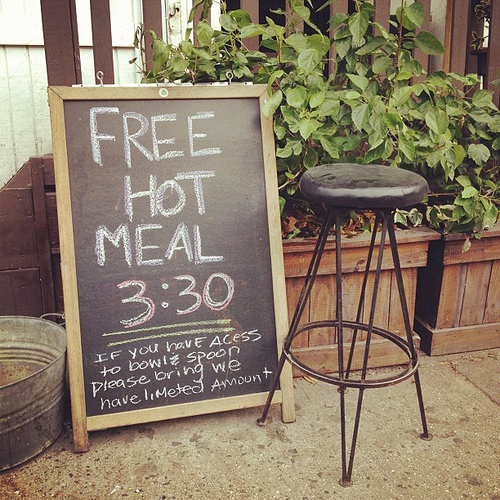 FREE
HOT
MEAL
3:30
IF YOU HAVE ACESS
to bowl & spoon
Please bring we
have limeted Amount